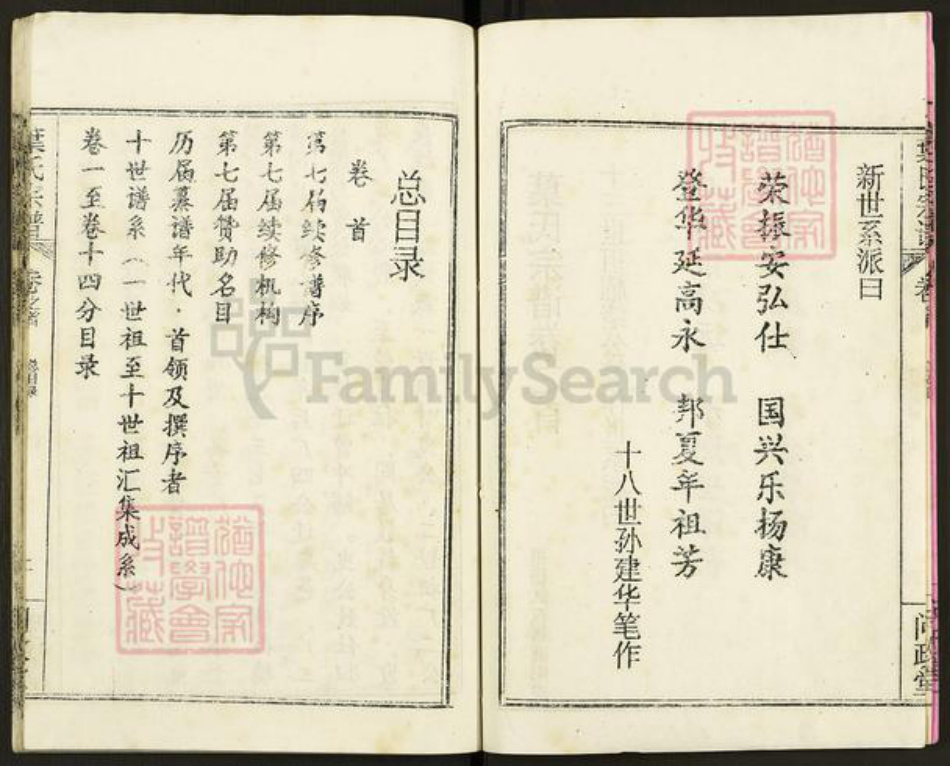 新世系派曰
荣振安弘仕　国兴乐杨康
登华延高永　邦夏年祖芳
十八世孙建华笔作
总目录
卷首
第七届续修谱序
第七届续修机构
第七届赞助名目
历届纂谱年代·首领及撰序者
十世谱系（一世祖至十世祖汇集成系）
卷一至卷十四分目录
葉氏宗譜
卷之首
FamilySearch